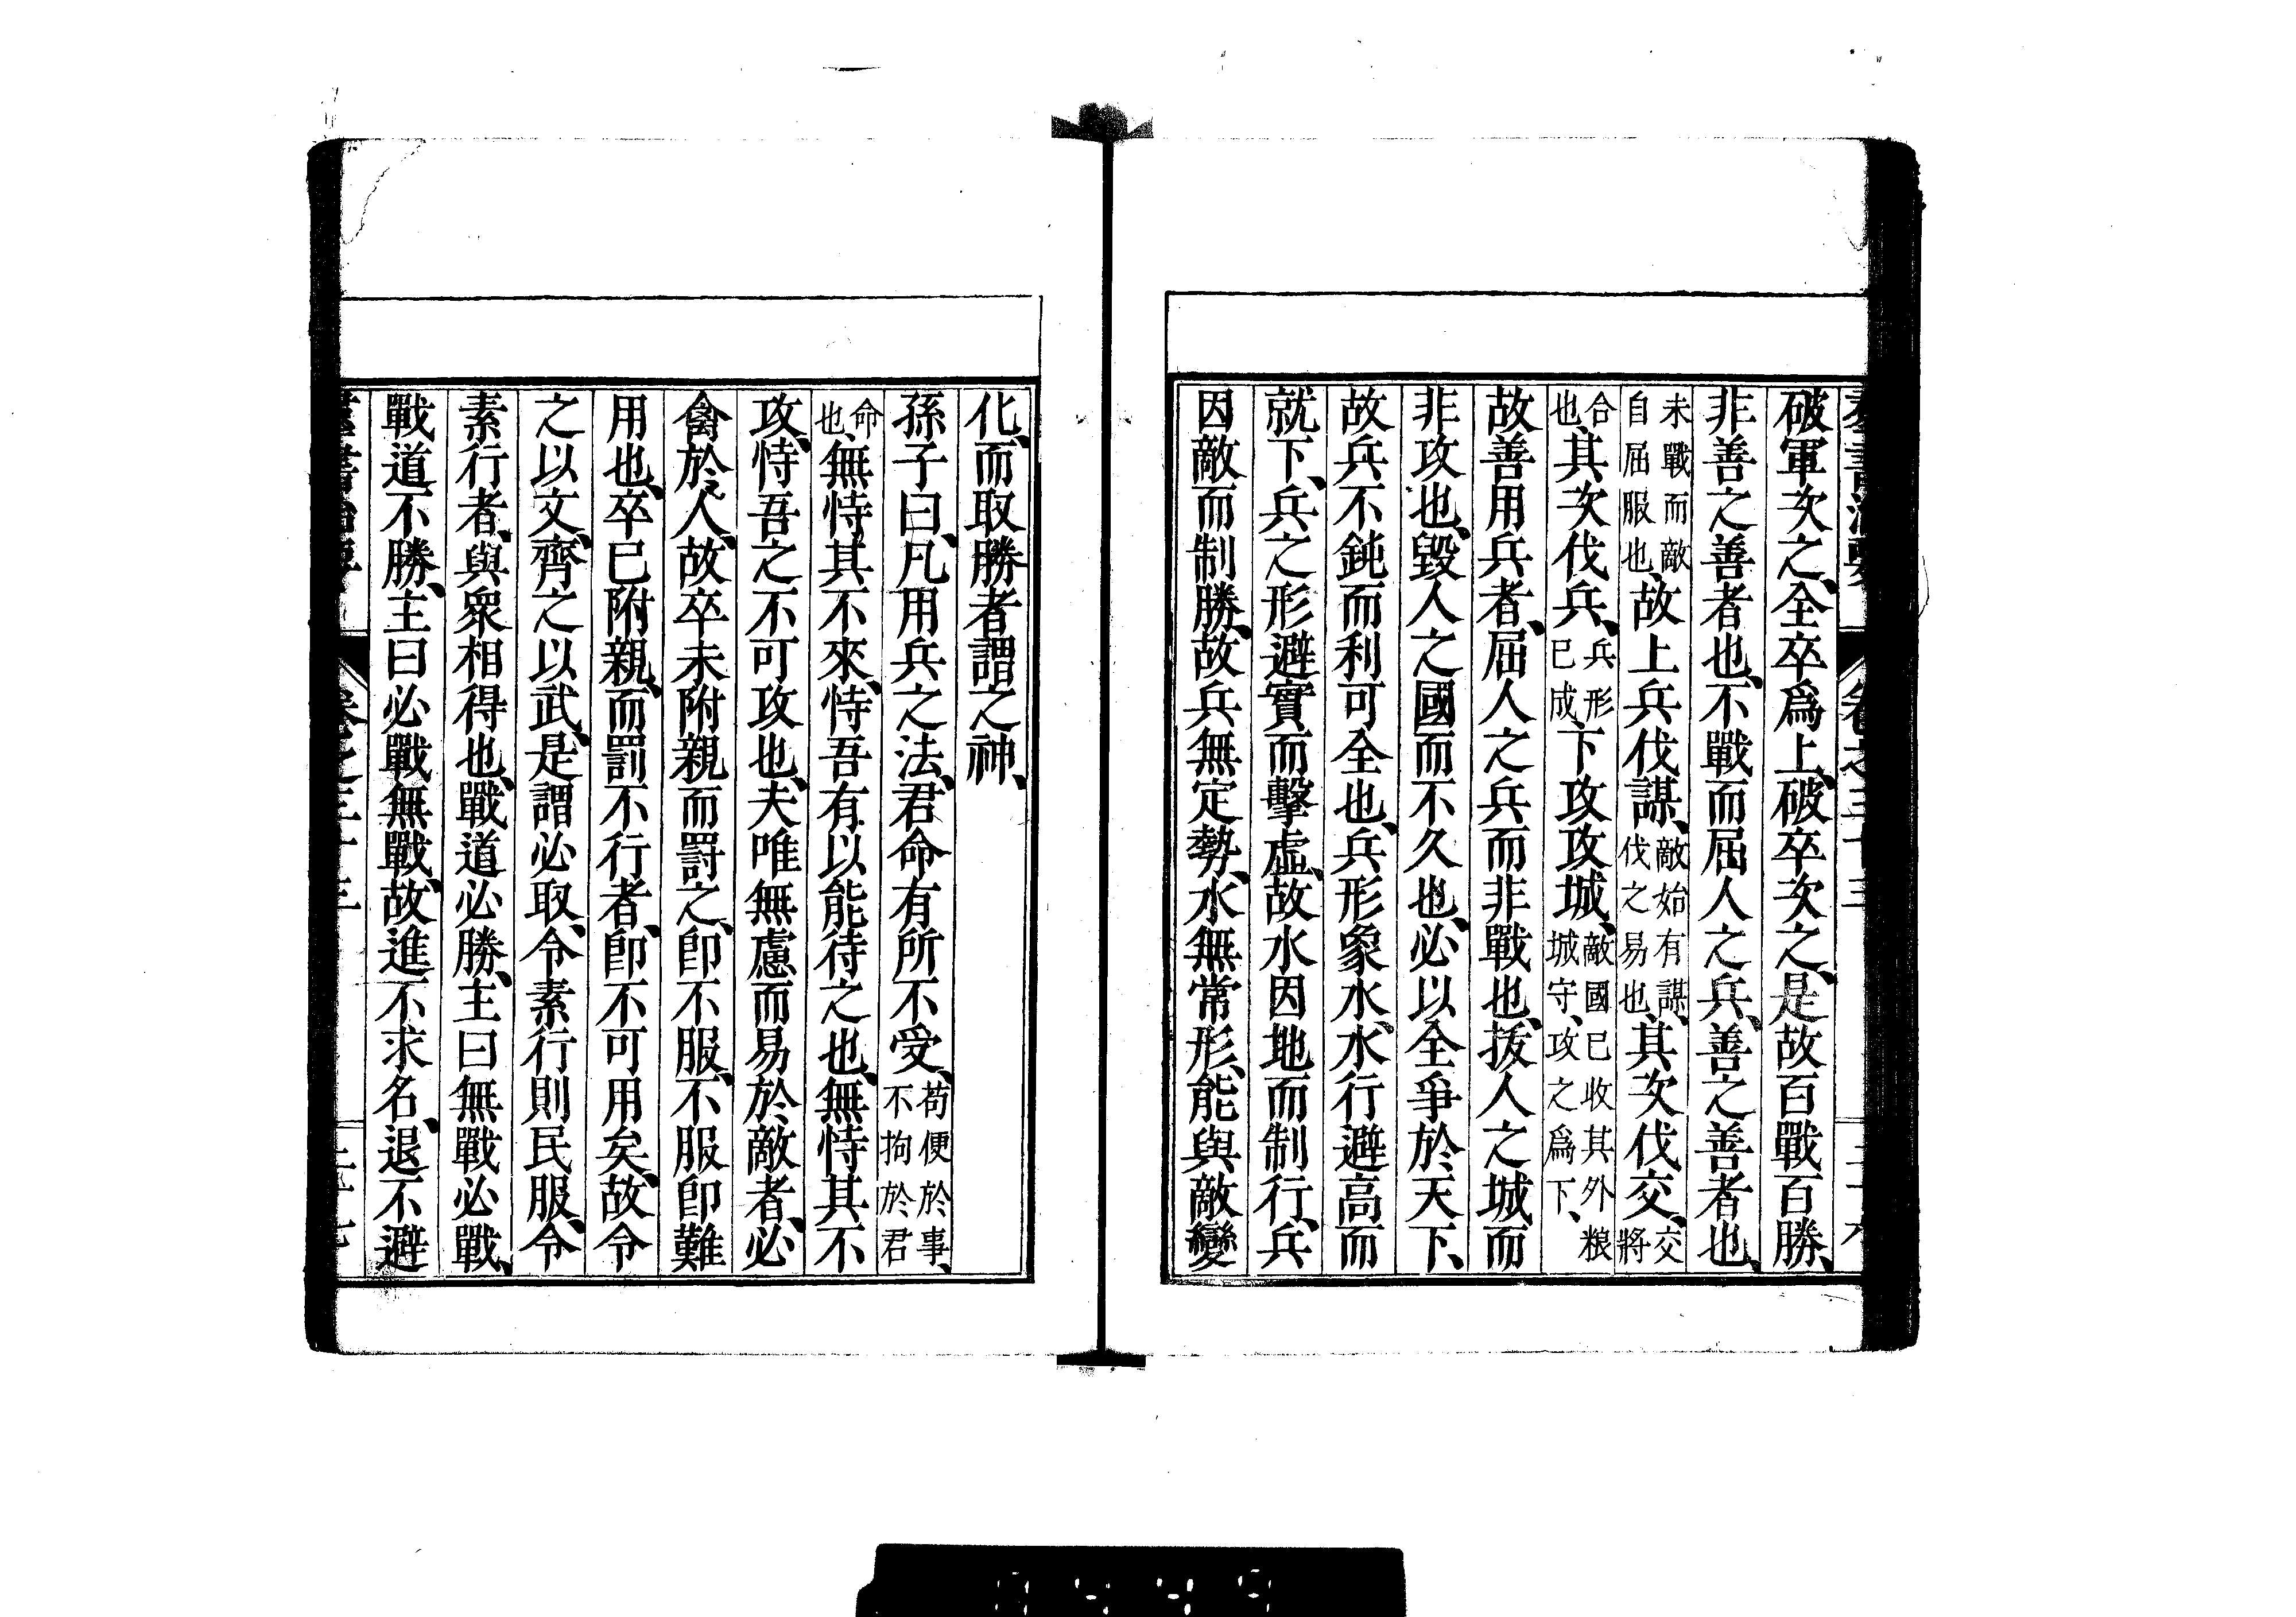 破軍次之、全卒爲上、破卒次之、是故百戰百勝、
非善之善者也、不戰而屈人之兵、善之善者也、
未戰而敵自屈服也、故上兵伐謀、敵始有謀、伐之易也、其次伐交、交將
合也、其次伐兵、兵形已成、下攻攻城、敵國已收其外粮城守、攻之爲下、
故善用兵者、屈人之兵而非戰也、拔人之城而
非攻也、毀人之國而不久也、必以全爭於天下、
故兵不鈍而利可全也、兵形象水、水行避高而
就下、兵之形避實而擊虛、故水因地而制行、兵
因敵而制勝、故兵無定勢、水無常形、能與敵變
化、而取勝者謂之神、
孫子曰、凡用兵之法、君命有所不受、苟便於事、不拘於君
命也、無恃其不來、恃吾有以能待之也、無恃其不
攻、恃吾之不可攻也、夫唯無慮而易於敵者、必
禽於人、故卒未附親而罸之、卽不服、不服卽難
用也、卒已附親、而罰不行者、卽不可用矣、故令
之以文、齊之以武、是謂必取、令素行則民服、令
素行者、與衆相得也、戰道必勝、主曰無戰必戰、
戰道不勝、主曰必戰無戰、故進不求名、退不避